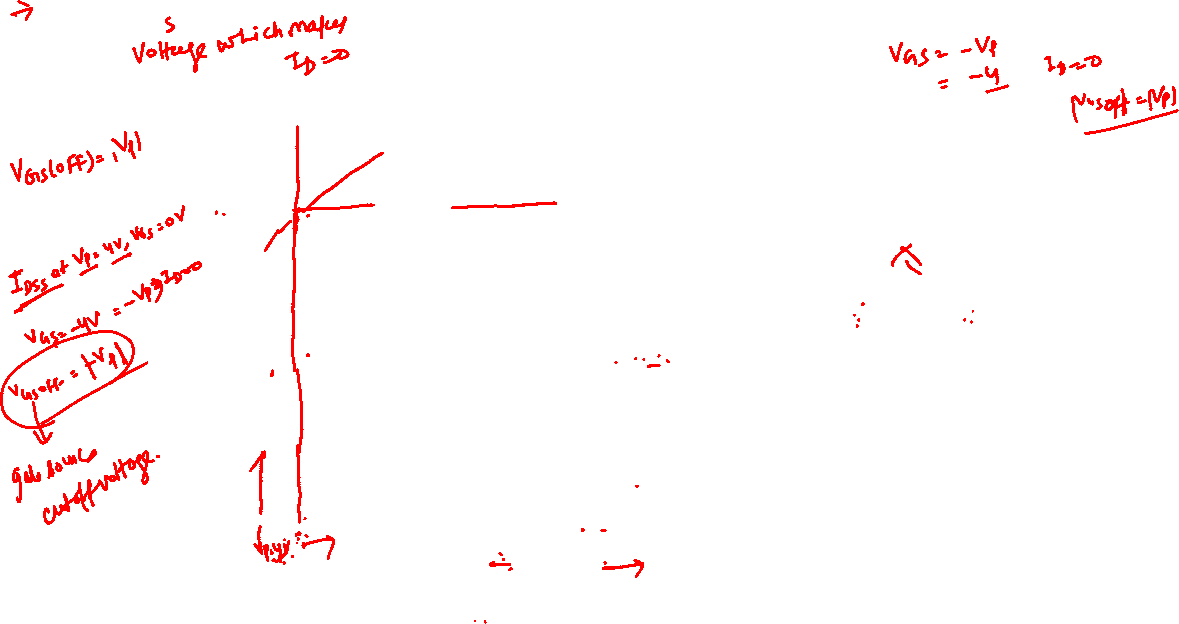 S
Voltage which makes
ID=0
VGS= -VP
= -4
ID=0
|VGSoff = |VP|
VGS(OFF)= |VP|
IDSS at VP=4V, VGS=0V
VGS= -4V = -VP ID=0
VGSoff = |-VP|
gate source
cutoff voltage.